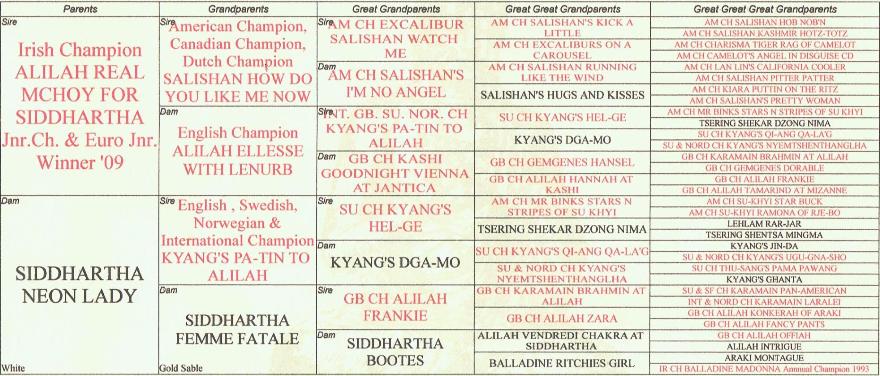 Parents
Grandparents
Great Grandparents
Great Great Grandparents
Great Great Great Grandparents
Sire
Irish Champion
ALILAH REAL
MCHOY FOR
SIDDHARTHA
Jnr.Ch. & Euro Jnr.
Winner '09
Dam
SIDDHARTHA
NEON LADY
White
Sire
American Champion,
Canadian Champion,
Dutch Champion
SALISHAN HOW DO
YOU LIKE ME NOW
Dam
English Champion
ALILAH ELLESSE
WITH LENURB
Sire
English , Swedish,
Norwegian &
International Champion
KYANG'S PA-TIN TO
ALILAH
Dam
SIDDHARTHA
FEMME FATALE
Gold Sable
Sire
AM CH EXCALIBUR
SALISHAN WATCH
ME
Dam
AM CH SALISHAN'S
I'M NO ANGEL
Sire
INT. GB. SU. NOR. CH
KYANG'S PA-TIN TO
ALILAH
Dam
GB CH KASHI
GOODNIGHT VIENNA
AT JANTICA
Sire
SU CH KYANG'S
HEL-GE
Dam
KYANG'S DGA-MO
Sire
GB CH ALILAH
FRANKIE
Dam
SIDDHARTHA
BOOTES
AM CH SALISHAN'S KICK A
LITTLE
AM CH EXCALIBURS ON A
CAROUSEL
AM CH SALISHAN RUNNING
LIKE THE WIND
SALISHAN'S HUGS AND KISSES
SU CH KYANG'S HEL-GE
KYANG'S DGA-MO
GB CH GEMGENES HANSEL
GB CH ALILAH HANNAH AT
KASHI
AM CH MR BINKS STARS N
STRIPES OF SU KHYI
TSERING SHEKAR DZONG NIMA
SU CH KYANG'S QI-ANG QA-LA'G
SU & NORD CH KYANG'S
NYEMTSHENTHANGLHA
GB CH KARAMAIN BRAHMIN AT
ALILAH
GB CH ALILAH ZARA
ALILAH VENDREDI CHAKRA AT
SIDDHARTHA
BALLADINE RITCHIES GIRL
AM CH SALISHAN HOB NOB'N
AM CH SALISHAN KASHMIR HOTZ-TOTZ
AM CH CHARISMA TIGER RAG OF CAMELOT
AM CH CAMELOT'S ANGEL IN DISGUISE CD
AM CH LAN LIN'S CALIFORNIA COOLER
AM CH SALISHAN PITTER PATTER
AM CH KIARA PUTTIN ON THE RITZ
AM CH SALISHAN'S PRETTY WOMAN
AM CH MR BINKS STARS N STRIPES OF SU KHYI
TSERING SHEKAR DZONG NIMA
SU CH KYANG'S QI-ANG QA-LA'G
SU & NORD CH KYANG'S NYEMTSHENTHANGLHA
GB CH KARAMAIN BRAHMIN AT ALILAH
GB CH GEMGENES DORABLE
GB CH ALILAH FRANKIE
GB CH ALILAH TAMARIND AT MIZANNE
AM CH SU-KHYI STAR BUCK
AM CH SU-KHYI RAMONA OF RJE-BO
LEHLAM RAR-JAR
TSERING SHENTSA MINGMA
KYANG'S JIN-DA
SU & NORD CH KYANG'S UGU-GNA-SHO
SU CH THU-SANG'S PAMA PAWANG
KYANG'S GHANTA
SU & SF CH KARAMAIN PAN-AMERICAN
INT & NORD CH KARAMAIN LARALEI
GB CH ALILAH KONKERAH OF ARAKI
GB CH ALILAH FANCY PANTS
GB CH ALILAH OFFIAH
ALILAH INTRIGUE
ARAKI MONTAGUE
IR CH BALLADINE MADONNA Annnual Champion 1993